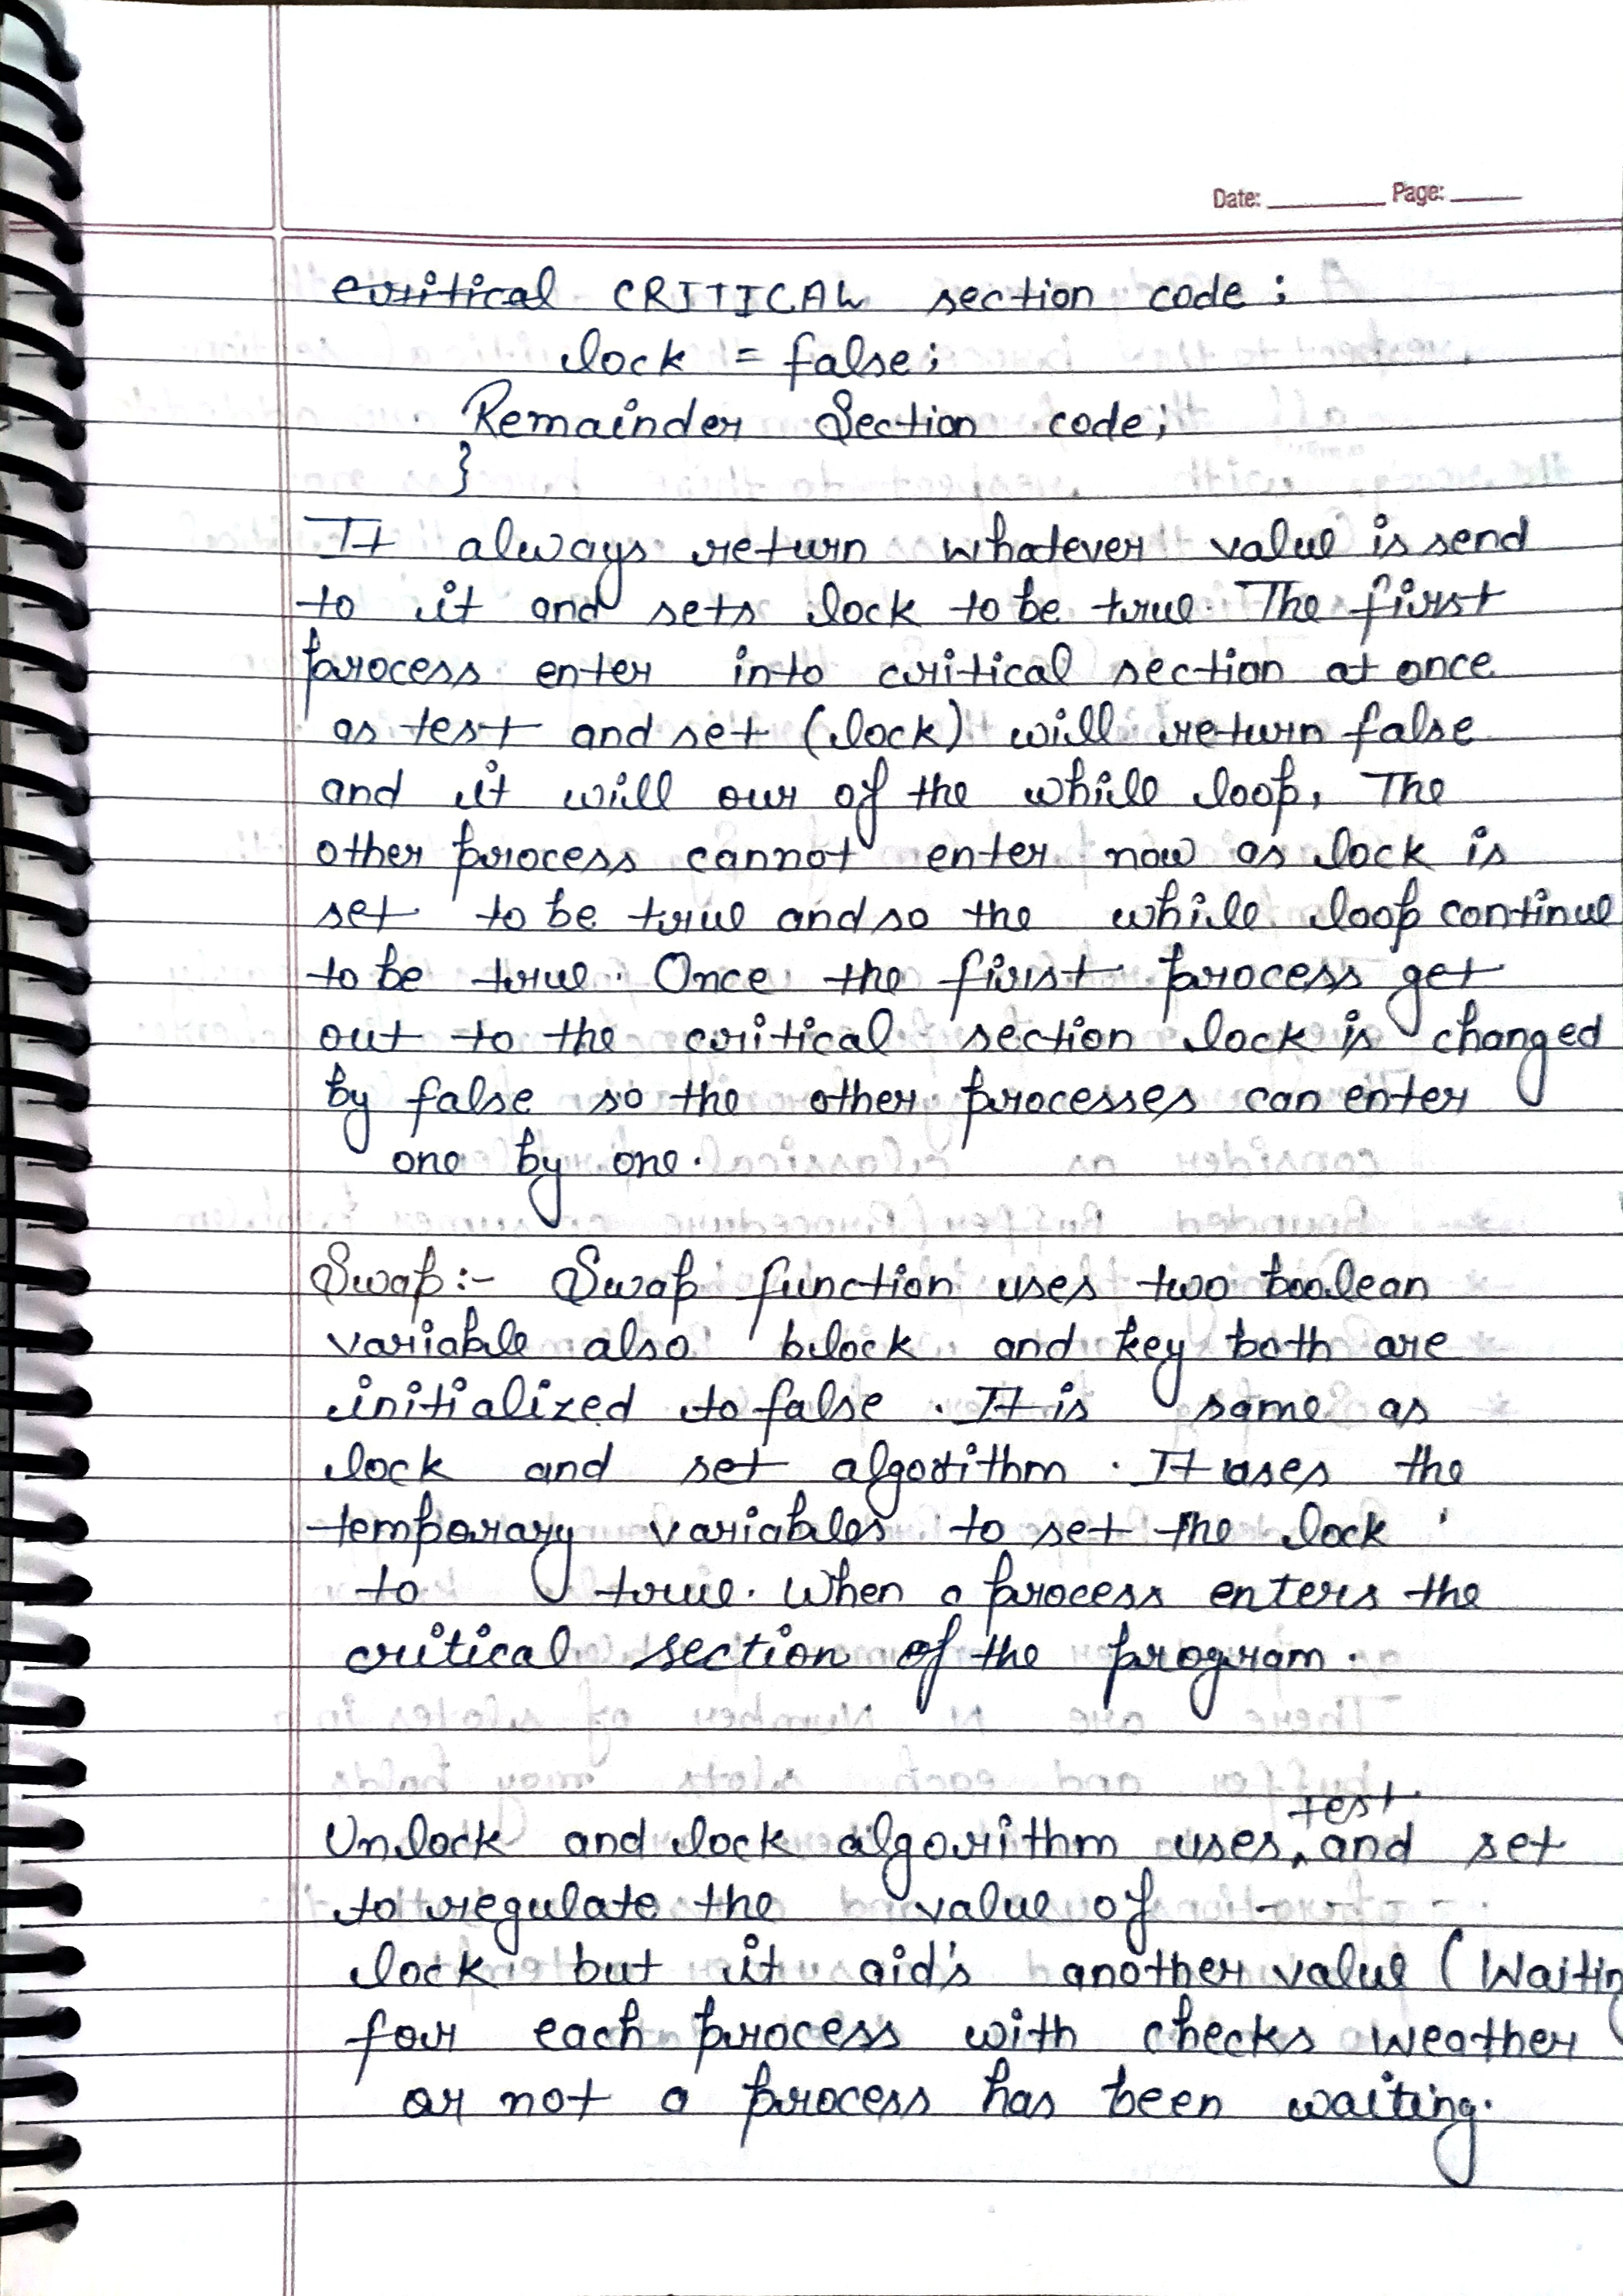 Date: Page:
critical CRITICAL section code ;
lock = false;
Remainder Section code;
}
It always return whatever value is send
to it and sets lock to be true. The first
process enter into critical section at once
as test and set (lock) will return false
and it will our of the while loop, The
other process cannot enter now as lock is
set to be true and so the while loop continue
to be true. Once the first process get
out to the critical section lock is changed
by false so the other processes can enter
one by one.
Swap:- Swap function uses two boolean
variable also block and key both are
initialized to false . It is same as
lock and set algorithm . It uses the
temporary variables to set the lock
to true. When a process enters the
critical section of the program.
test
Unlock and lock algorithm uses and set
to regulate the value of -
lock but it aid's another value (Waiting
for each process with checks weather
or not a process has been waiting.